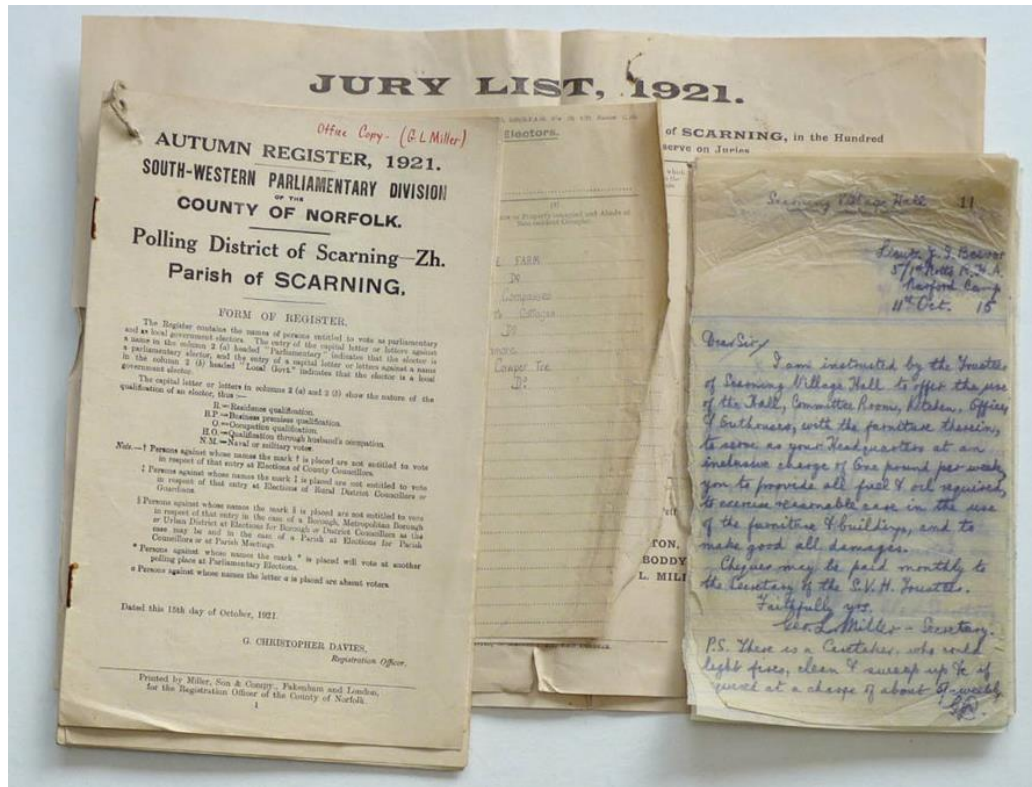 JURY LIST, 1921.
of SCARNING, in the Hundred
serve on Juries
Office Copy. (G L Miller)
AUTUMN REGISTER, 1921.
SOUTH-WESTERN PARLIAMENTARY DIVISION
OF THE
COUNTY OF NORFOLK.
Polling District of Scarning—Zh.
Parish of SCARNING.
FORM OF REGISTER.
The Register contains the names of persons entitled to vote as parliamentary
and as local government electors. The entry of the capital letter or letters against
a name in the column 2 (a) headed "Parliamentary" indicates that the elector is
a parliamentary elector, and the entry of a capital letter or letters against a name
in the column 2 (b) headed "Local Govt." indicates that the elector is a local
government elector.
The capital letter or letters in columns 2 (a) and 2 (b) show the nature of the
qualification of an elector, thus :—
R.—Residence qualification.
B.P.—Business premises qualification.
O.—Occupation qualification.
H.O.—Qualification through husband's occupation.
N.M.—Naval or military voter.
Note.—† Persons against whose names the mark † is placed are not entitled to vote
in respect of that entry at Elections of County Councillors.
‡ Persons against whose names the mark ‡ is placed are not entitled to vote
in respect of that entry at Elections of Rural District Councillors or
Guardians.
§ Persons against whose names the mark § is placed are not entitled to vote
in respect of that entry in the case of a Borough, Metropolitan Borough
or Urban District at Elections for Borough or District Councillors as the
case may be and in the case of a Parish at Elections for Parish
Councillors or at Parish Meetings.
* Persons against whose names the mark * is placed will vote at another
polling place at Parliamentary Elections.
a Persons against whose names the letter a is placed are absent voters.
Dated this 15th day of October, 1921.
G. CHRISTOPHER DAVIES,
Registration Officer.
Printed by Miller, Son & Compy., Fakenham and London,
for the Registration Officer of the County of Norfolk.
1
Electors.
FARM
Do
Compasses
Cottages
Do
Cowper Tce
Do
TON,
BODDY
L. MILL
Scarning Village Hall 11
Lieut. J. I.
5/1st Notts R.H.A.
Narford Camp
11th Oct. 15
Dear Sir/
I am instructed by the Trustees
of Scarning Village Hall to offer the use
of the Hall, Committee Room, Kitchen, Offices
& Outhouses, with the furniture therein,
to serve as your Headquarters at an
inclusive charge of One pound per week,
you to provide all fuel & oil required,
to exercise reasonable care in the use
of the furniture & buildings, and to
make good all damages.
Cheques may be paid monthly to
the Secretary of the S.V.H. Trustees.
Faithfully yrs.
Geo. L. Miller – Secretary.
P.S. There is a Caretaker, who could
light fires, clean & sweep up &c if
quired at a charge of about weekly